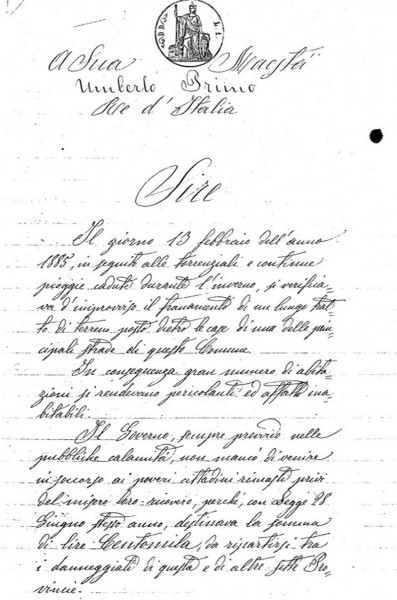 A Sua Maestà
Umberto Primo
Re d'Italia
Sire
Il giorno 13 febbraio dell'anno
1885, in seguito alle torrenziali e continue
pioggie cadute durante l'inverno, si verifica-
va d'improvviso il franamento di un lungo trat-
to di terreno posto dietro le case di una delle prin-
cipali strade di questo Comune.
In conseguenza gran numero di abita-
zioni si rendevano pericolanti ed affatto ina-
bitabili.
Il Governo, sempre provvido nelle
pubbliche calamità, non mancò di venire
in soccorso ai poveri cittadini rimasti privi
del misero loro ricovero, perché, con Legge 28
Giugno stesso anno, destinava la somma
di lire Centomila, da ripartirsi tra
i danneggiati di questa e di altre sette Pro-
vincie.